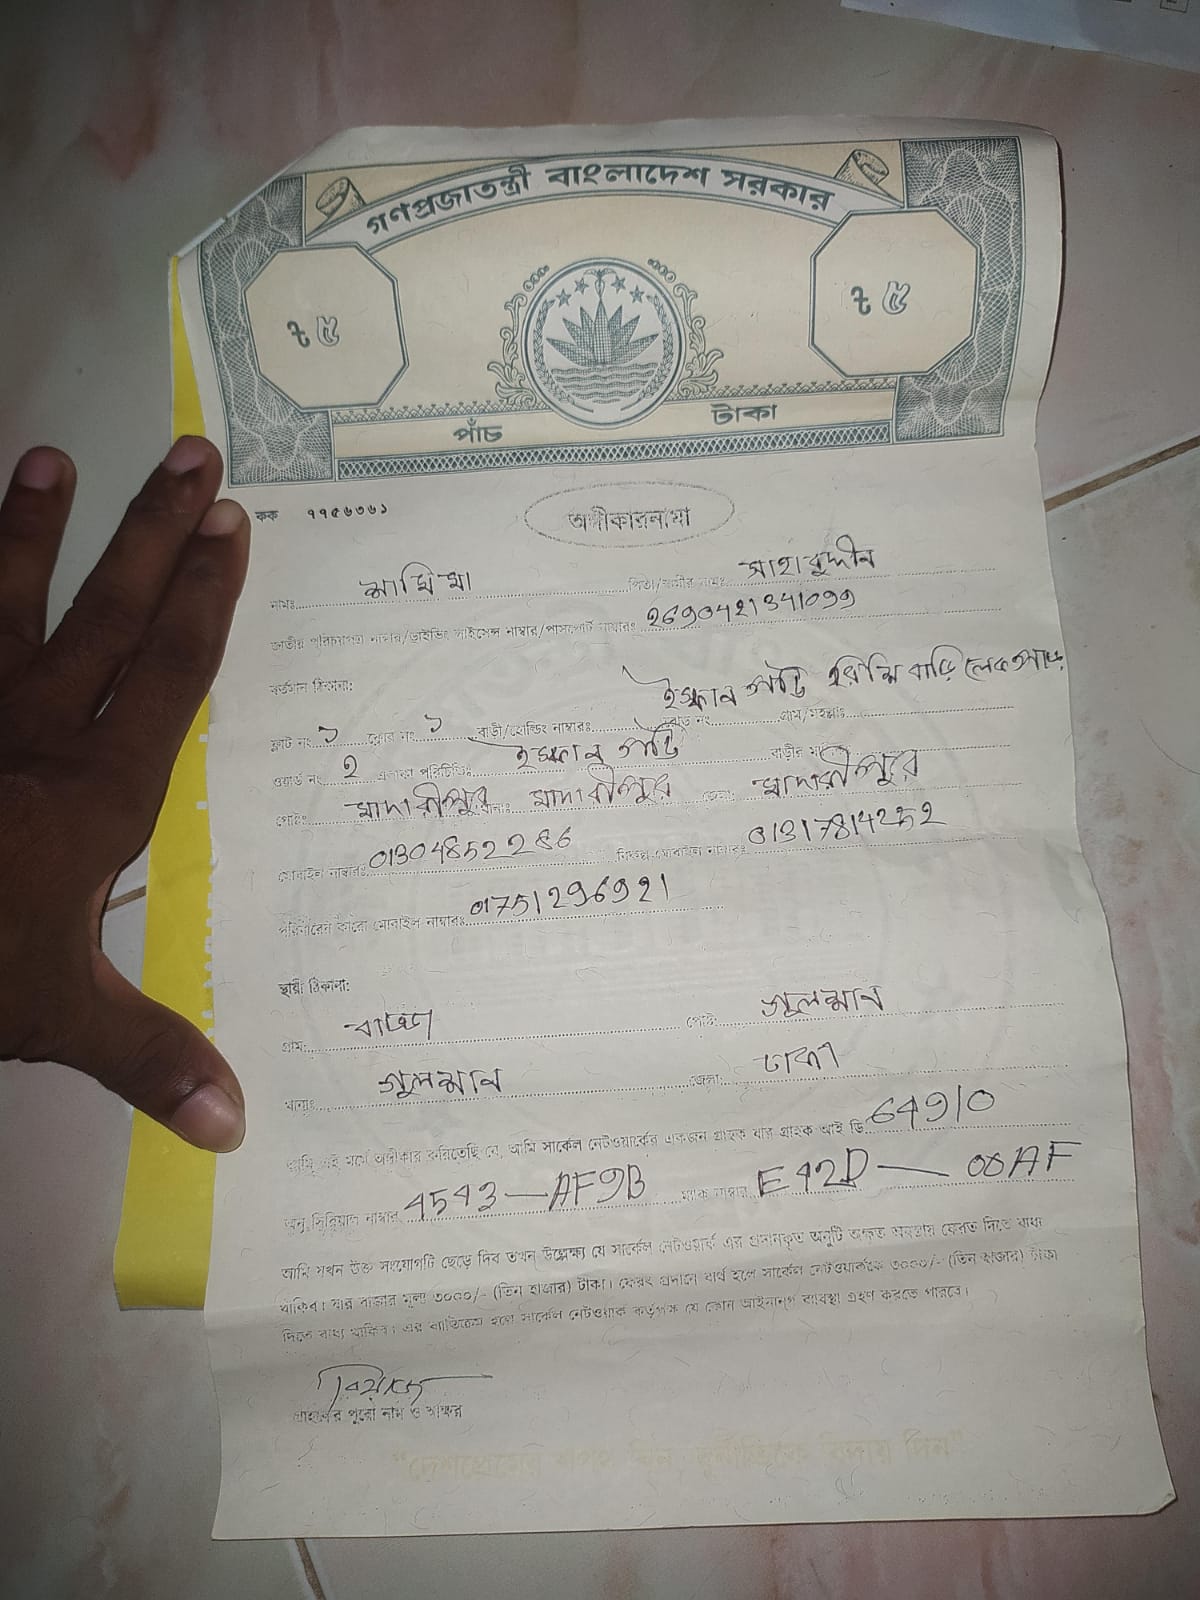 গণপ্রজাতন্ত্রী বাংলাদেশ সরকার
৳ ৫ ৳ ৫
পাঁচ টাকা
কক ৭৭৫৬৩৬১
অঙ্গীকারনামা
নামঃ পিতা/স্বামীর নামঃ সাহাবুদ্দীন
জাতীয় পরিচয়পত্র নাম্বার/ড্রাইভিং লাইসেন্স নাম্বার/পাসপোর্ট নাম্বারঃ
বর্তমান ঠিকানা:
ফ্লাট নং ১ ফ্লোর নং ১ বাড়ী/হোল্ডিং নাম্বারঃ রোড নং গ্রাম/মহল্লাঃ
ওয়ার্ড নং ২ এলাকা পরিচিতিঃ
পোষ্টঃ মাদারীপুর থানাঃ মাদারীপুর জেলাঃ মাদারীপুর
মোবাইল নাম্বারঃ বিকল্প মোবাইল নাম্বারঃ
পরিবারের কারো মোবাইল নাম্বারঃ
স্থায়ী ঠিকানা:
গ্রাম: বাড্ডা পোষ্ট: গুলশান
থানাঃ গুলশান জেলা: ঢাকা
আমি এই মর্মে অঙ্গীকার করিতেছি যে, আমি সার্কেল নেটওয়ার্কের একজন গ্রাহক যার গ্রাহক আই ডি
অনু সিরিয়াল নাম্বার 4543-AF9B ম্যাক নাম্বার E42D - 00AF
আমি যখন উক্ত সংযোগটি ছেড়ে দিব তখন উল্লেক্ষ্য যে সার্কেল নেটওয়ার্ক এর প্রদানকৃত অনুটি অক্ষত অবস্থায় ফেরত দিতে বাধ্য
থাকিব। যার বাজার মূল্য ৩০০০/- (তিন হাজার) টাকা। ফেরৎ প্রদানে ব্যর্থ হলে সার্কেল নেটওয়ার্ককে ৩০০০/- (তিন হাজার) টাকা
দিতে বাধ্য থাকিব। এর ব্যতিক্রম হলে সার্কেল নেটওয়ার্ক কর্তৃপক্ষ যে কোন আইনানুগ ব্যবস্থা গ্রহণ করতে পারবে।
গ্রাহকের পুরো নাম ও স্বাক্ষর
"দেশপ্রেমের শপথ নিন দুর্নীতিকে বিদায় দিন"